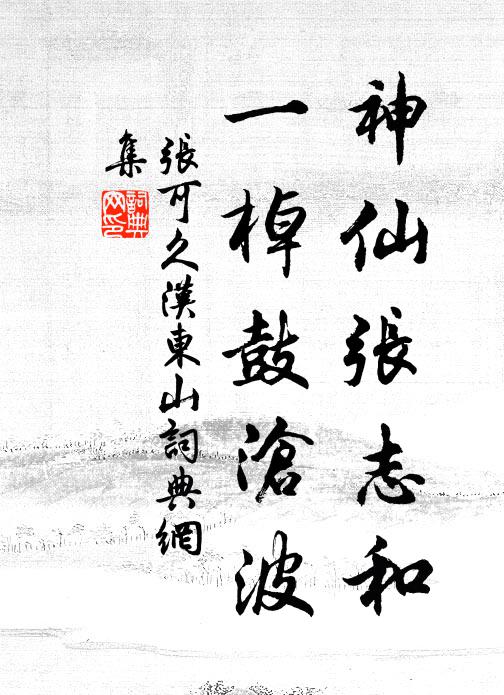 神仙張志和
一棹鼓滄波
張可久漢東山詞典網
集
詞典
网印